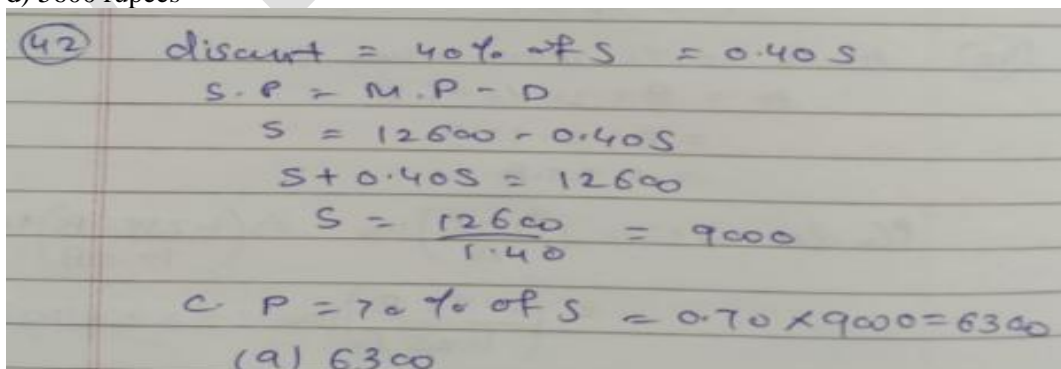 d) 5600 rupees
42 discunt = 40% of S = 0.40 S
S.P = M.P - D
S = 12600 - 0.40S
S + 0.40S = 12600
S = 12600 / 1.40 = 9000
C. P = 70 % of S = 0.70 × 9000 = 6300
(a) 6300